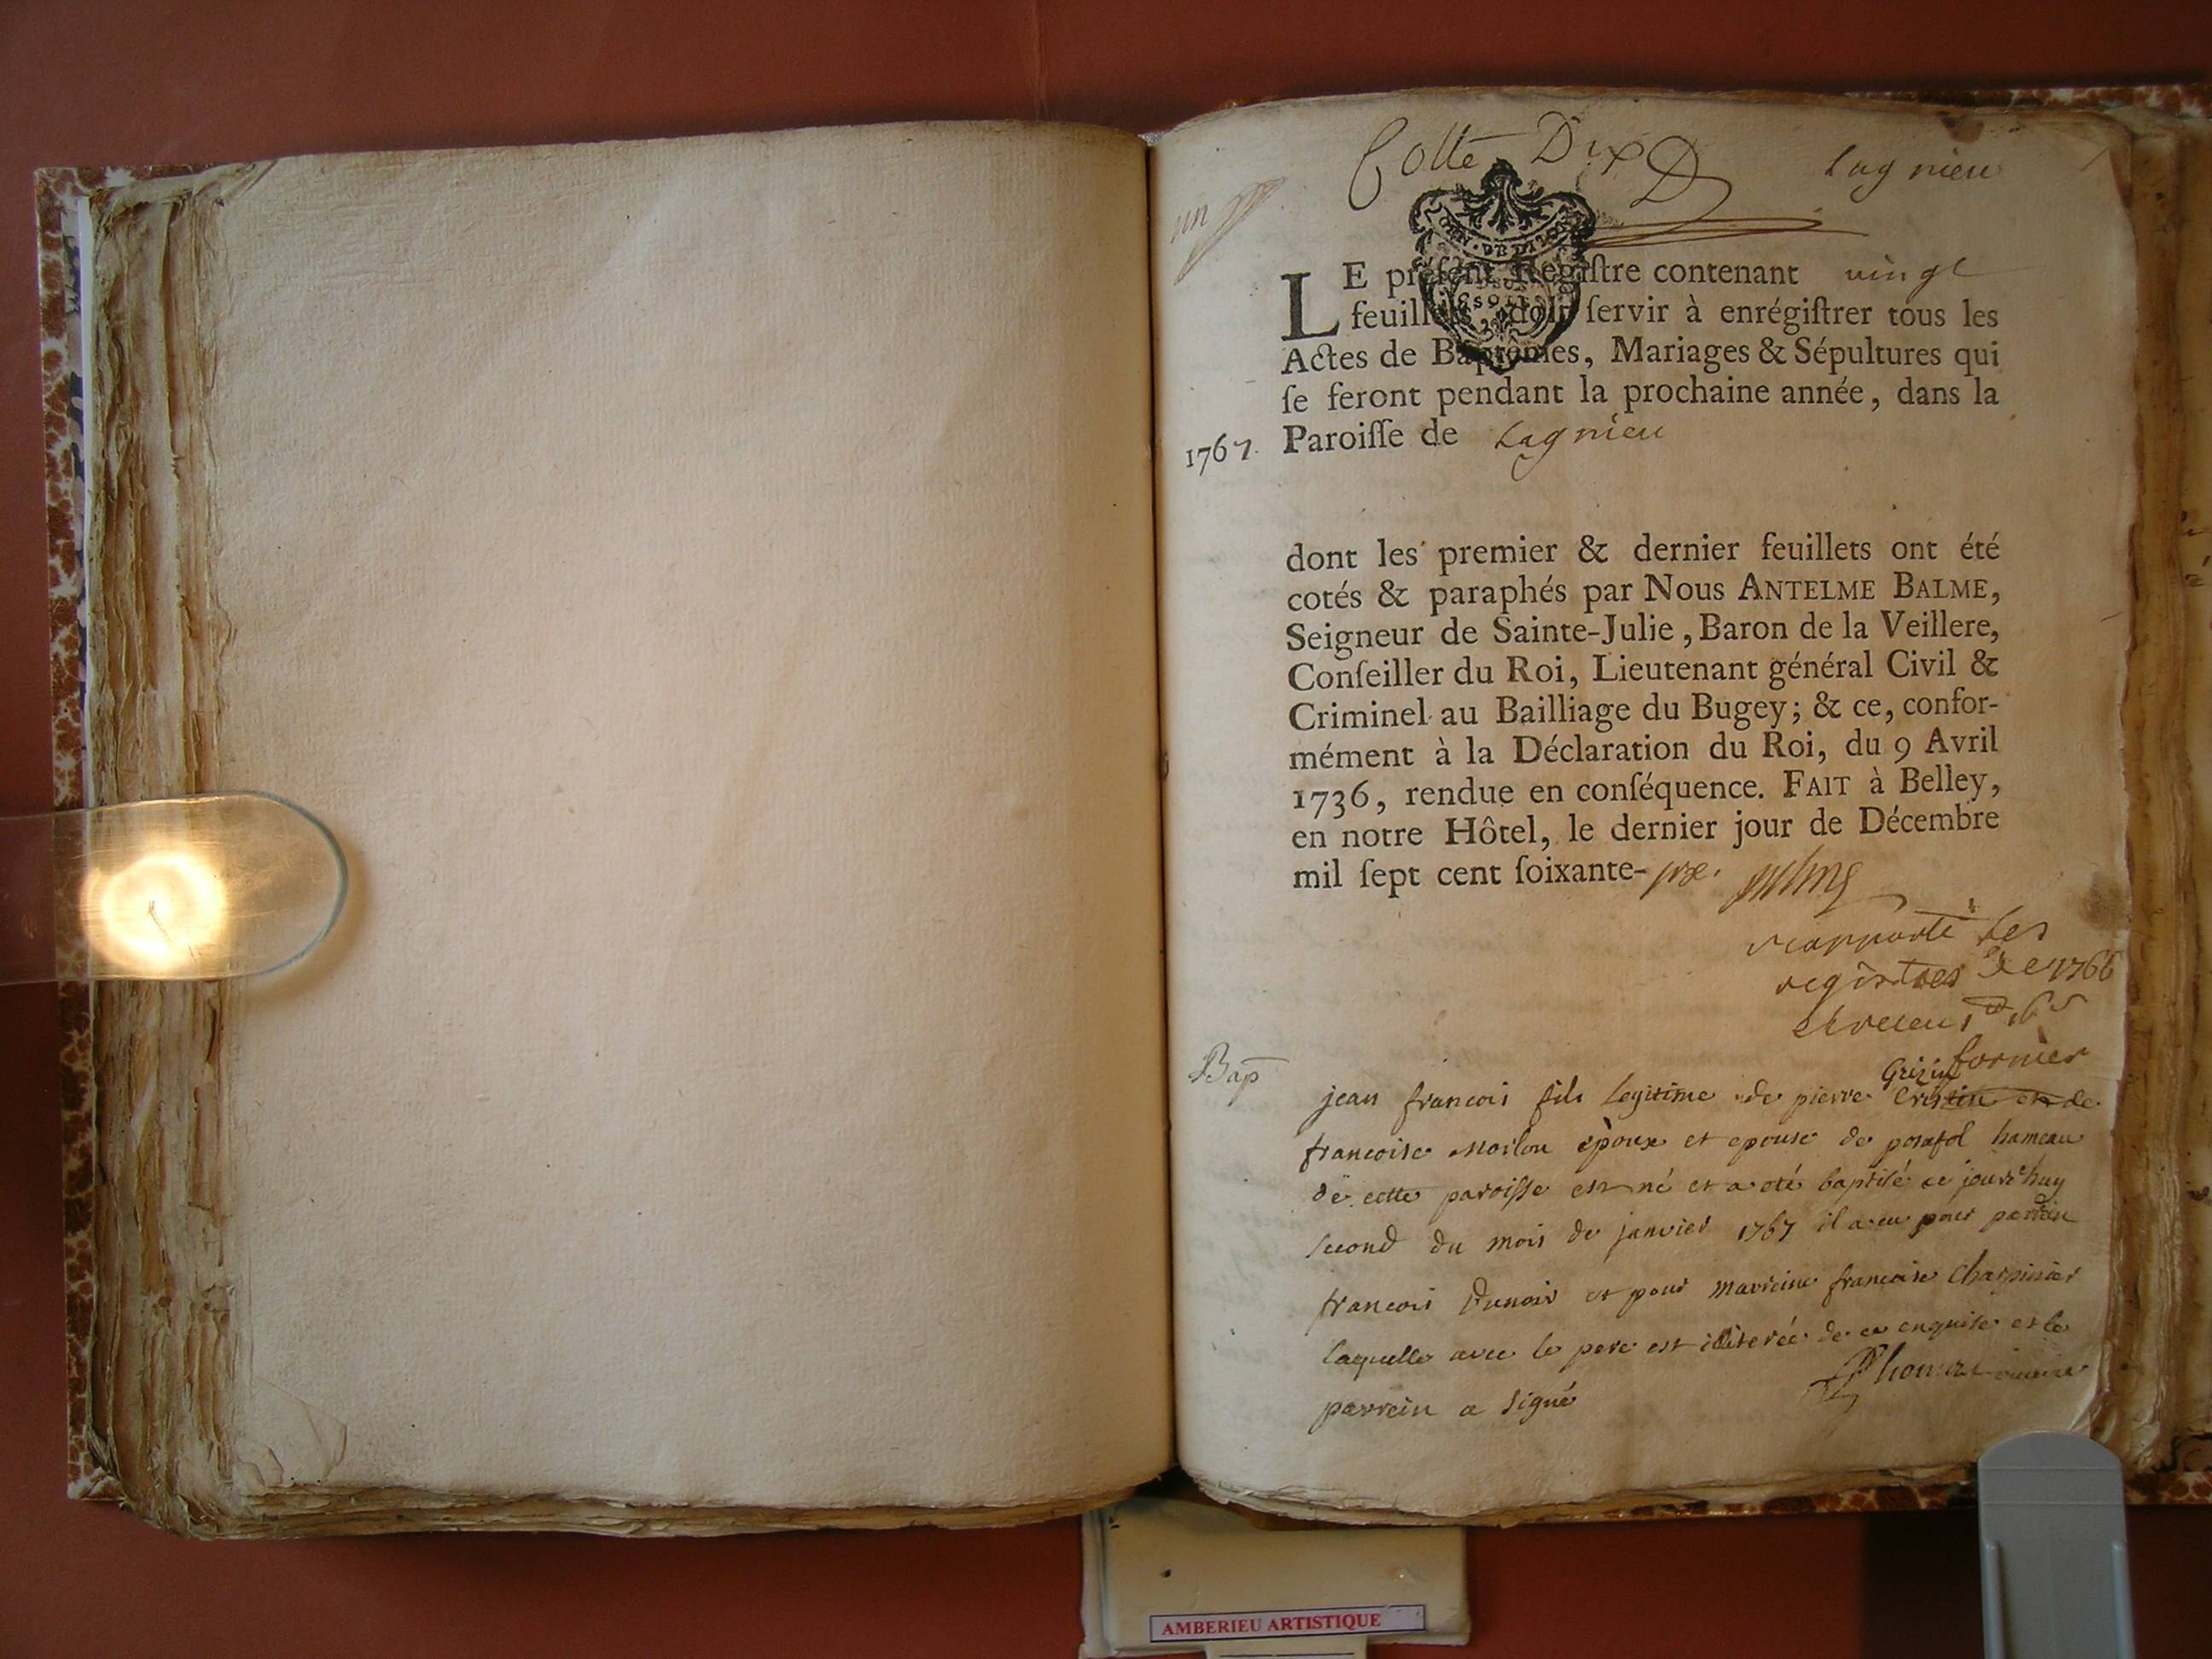 Cotte Dix
Lagnieu
un
LE préſent Regiſtre contenant vingt
feuillets, doit ſervir à enrégiſtrer tous les
Actes de Baptêmes, Mariages & Sépultures qui
ſe feront pendant la prochaine année, dans la
1767. Paroiſſe de Lagnieu
dont les premier & dernier feuillets ont été
cotés & paraphés par Nous ANTELME BALME,
Seigneur de Sainte-Julie, Baron de la Veillere,
Conſeiller du Roi, Lieutenant général Civil &
Criminel au Bailliage du Bugey; & ce, confor-
mément à la Déclaration du Roi, du 9 Avril
1736, rendue en conſéquence. FAIT à Belley,
en notre Hôtel, le dernier jour de Décembre
mil ſept cent ſoixante-
rapporté les
registres de 1766
fornier
Bap
Grizin
jean francois fils legitime de pierre et de
francoise epoux et epouse de posafol hameau
de cette paroisse est né et a eté baptisé ce jourdhuy
second du mois de janvier 1767 il a eu pour parrein
francois et pour marreine francoise Charpinier
laquelle avec le pere est illiterée de ce enquise et le
parrein a signé
AMBERIEU ARTISTIQUE